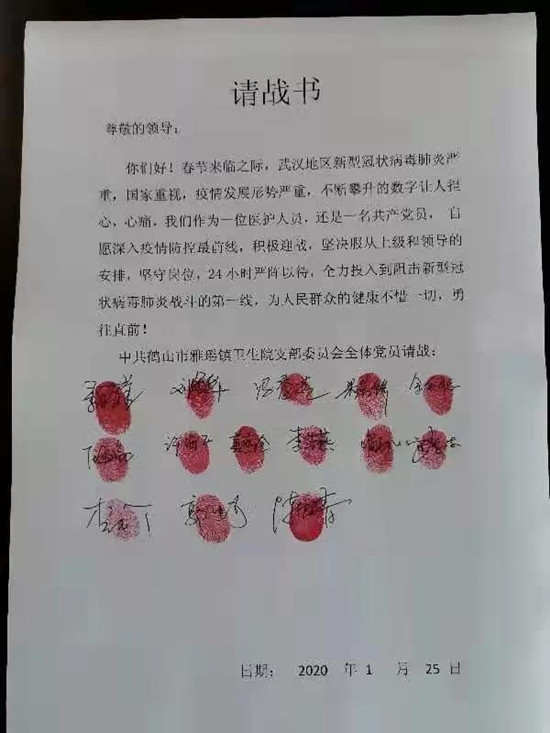 请战书
尊敬的领导：
你们好！春节来临之际，武汉地区新型冠状病毒肺炎严
重，国家重视，疫情发展形势严重，不断攀升的数字让人担
心，心痛，我们作为一位医护人员，还是一名共产党员， 自
愿深入疫情防控最前线，积极迎战，坚决服从上级和领导的
安排，坚守岗位，24 小时严阵以待，全力投入到阻击新型冠
状病毒肺炎战斗的第一线，为人民群众的健康不惜一切，勇
往直前！
中共鹤山市雅瑶镇卫生院支部委员会全体党员请战：
日期： 2020 年 1 月 25 日